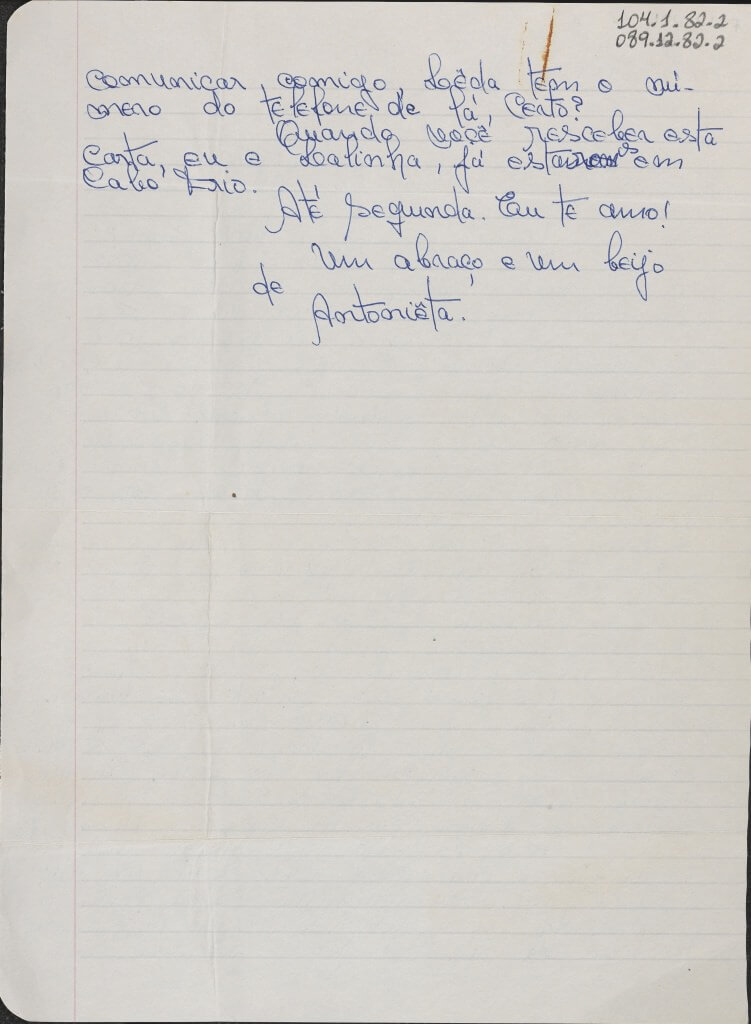 104.1.82.2
089.12.82.2
comunicar comigo, tem o nú-
mero do telefone de lá, certo?
Quando você resceber esta
carta, eu e já estamos em
Cabo Frio.
Até segunda. Eu te amo!
Um abraço e um beijo
de
Antoniêta.